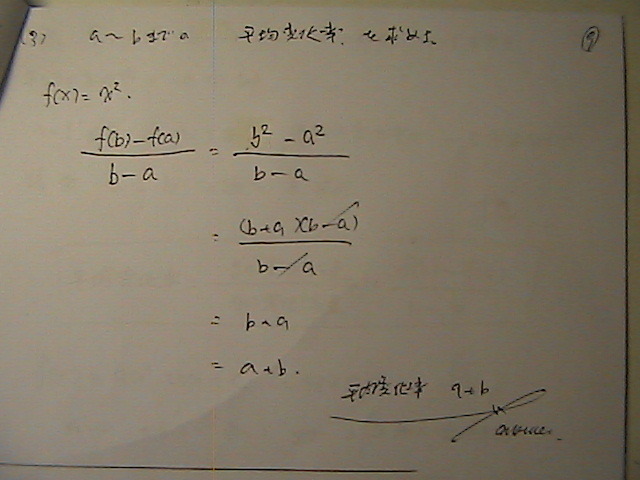 (3) a~bまでの 平均変化率 を求めよ ⑨
f(x) = x².
f(b)-f(a) / b-a = b² - a² / b-a
= (b+a)(b-a) / b-a
= b+a
= a+b.
平均変化率 a+b
answer.